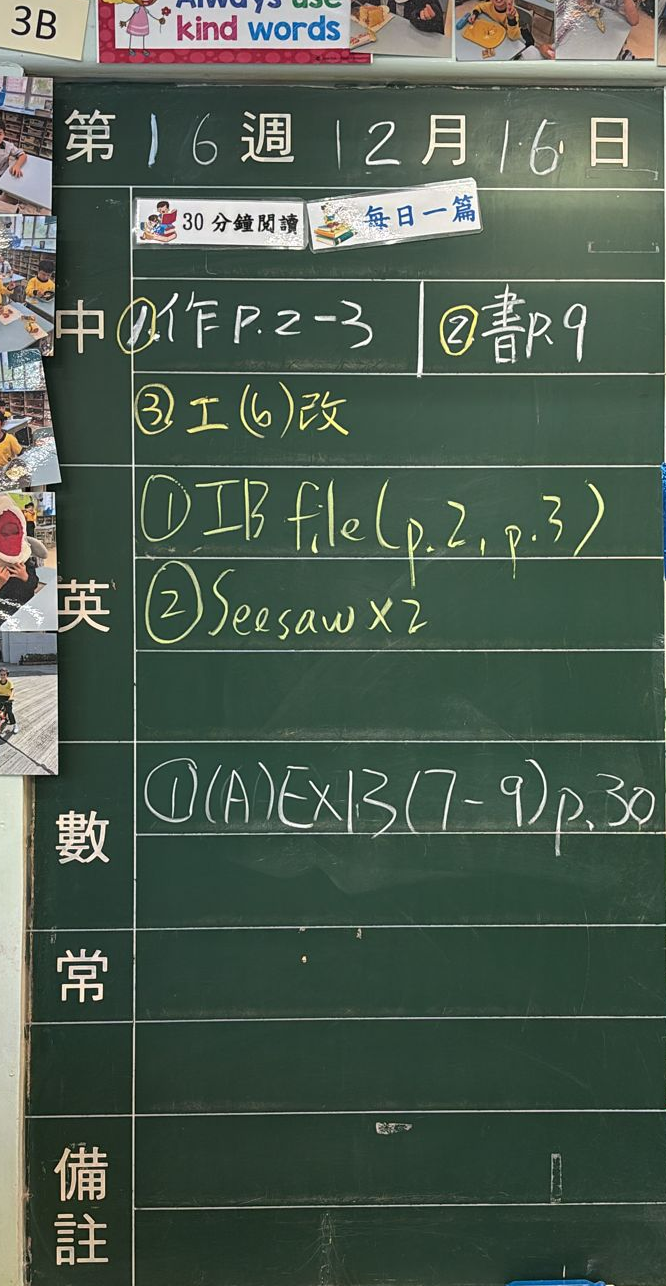 3B
Always use
kind words
第16週12月16日
30分鐘閱讀 每日一篇
中 ①作P.2-3 ②書P.9
③工(6)改
①IB file(p.2, p.3)
英 ②Seesaw x2
①(A)Ex13(7-9)p.30
數
常
備
註